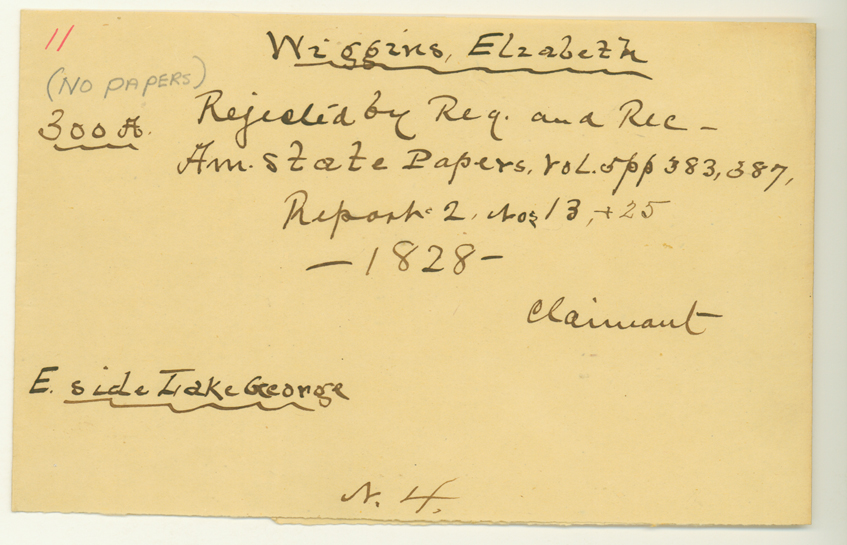 11
Wiggins, Elzabeth
(NO PAPERS)
300 A. Rejected by Reg. and Rec -
Am. State Papers, Vol. 5 pp 383, 387,
Report 2, Nos 13, + 25
— 1828 -
Claimant
E. side Lake George
N. 4.